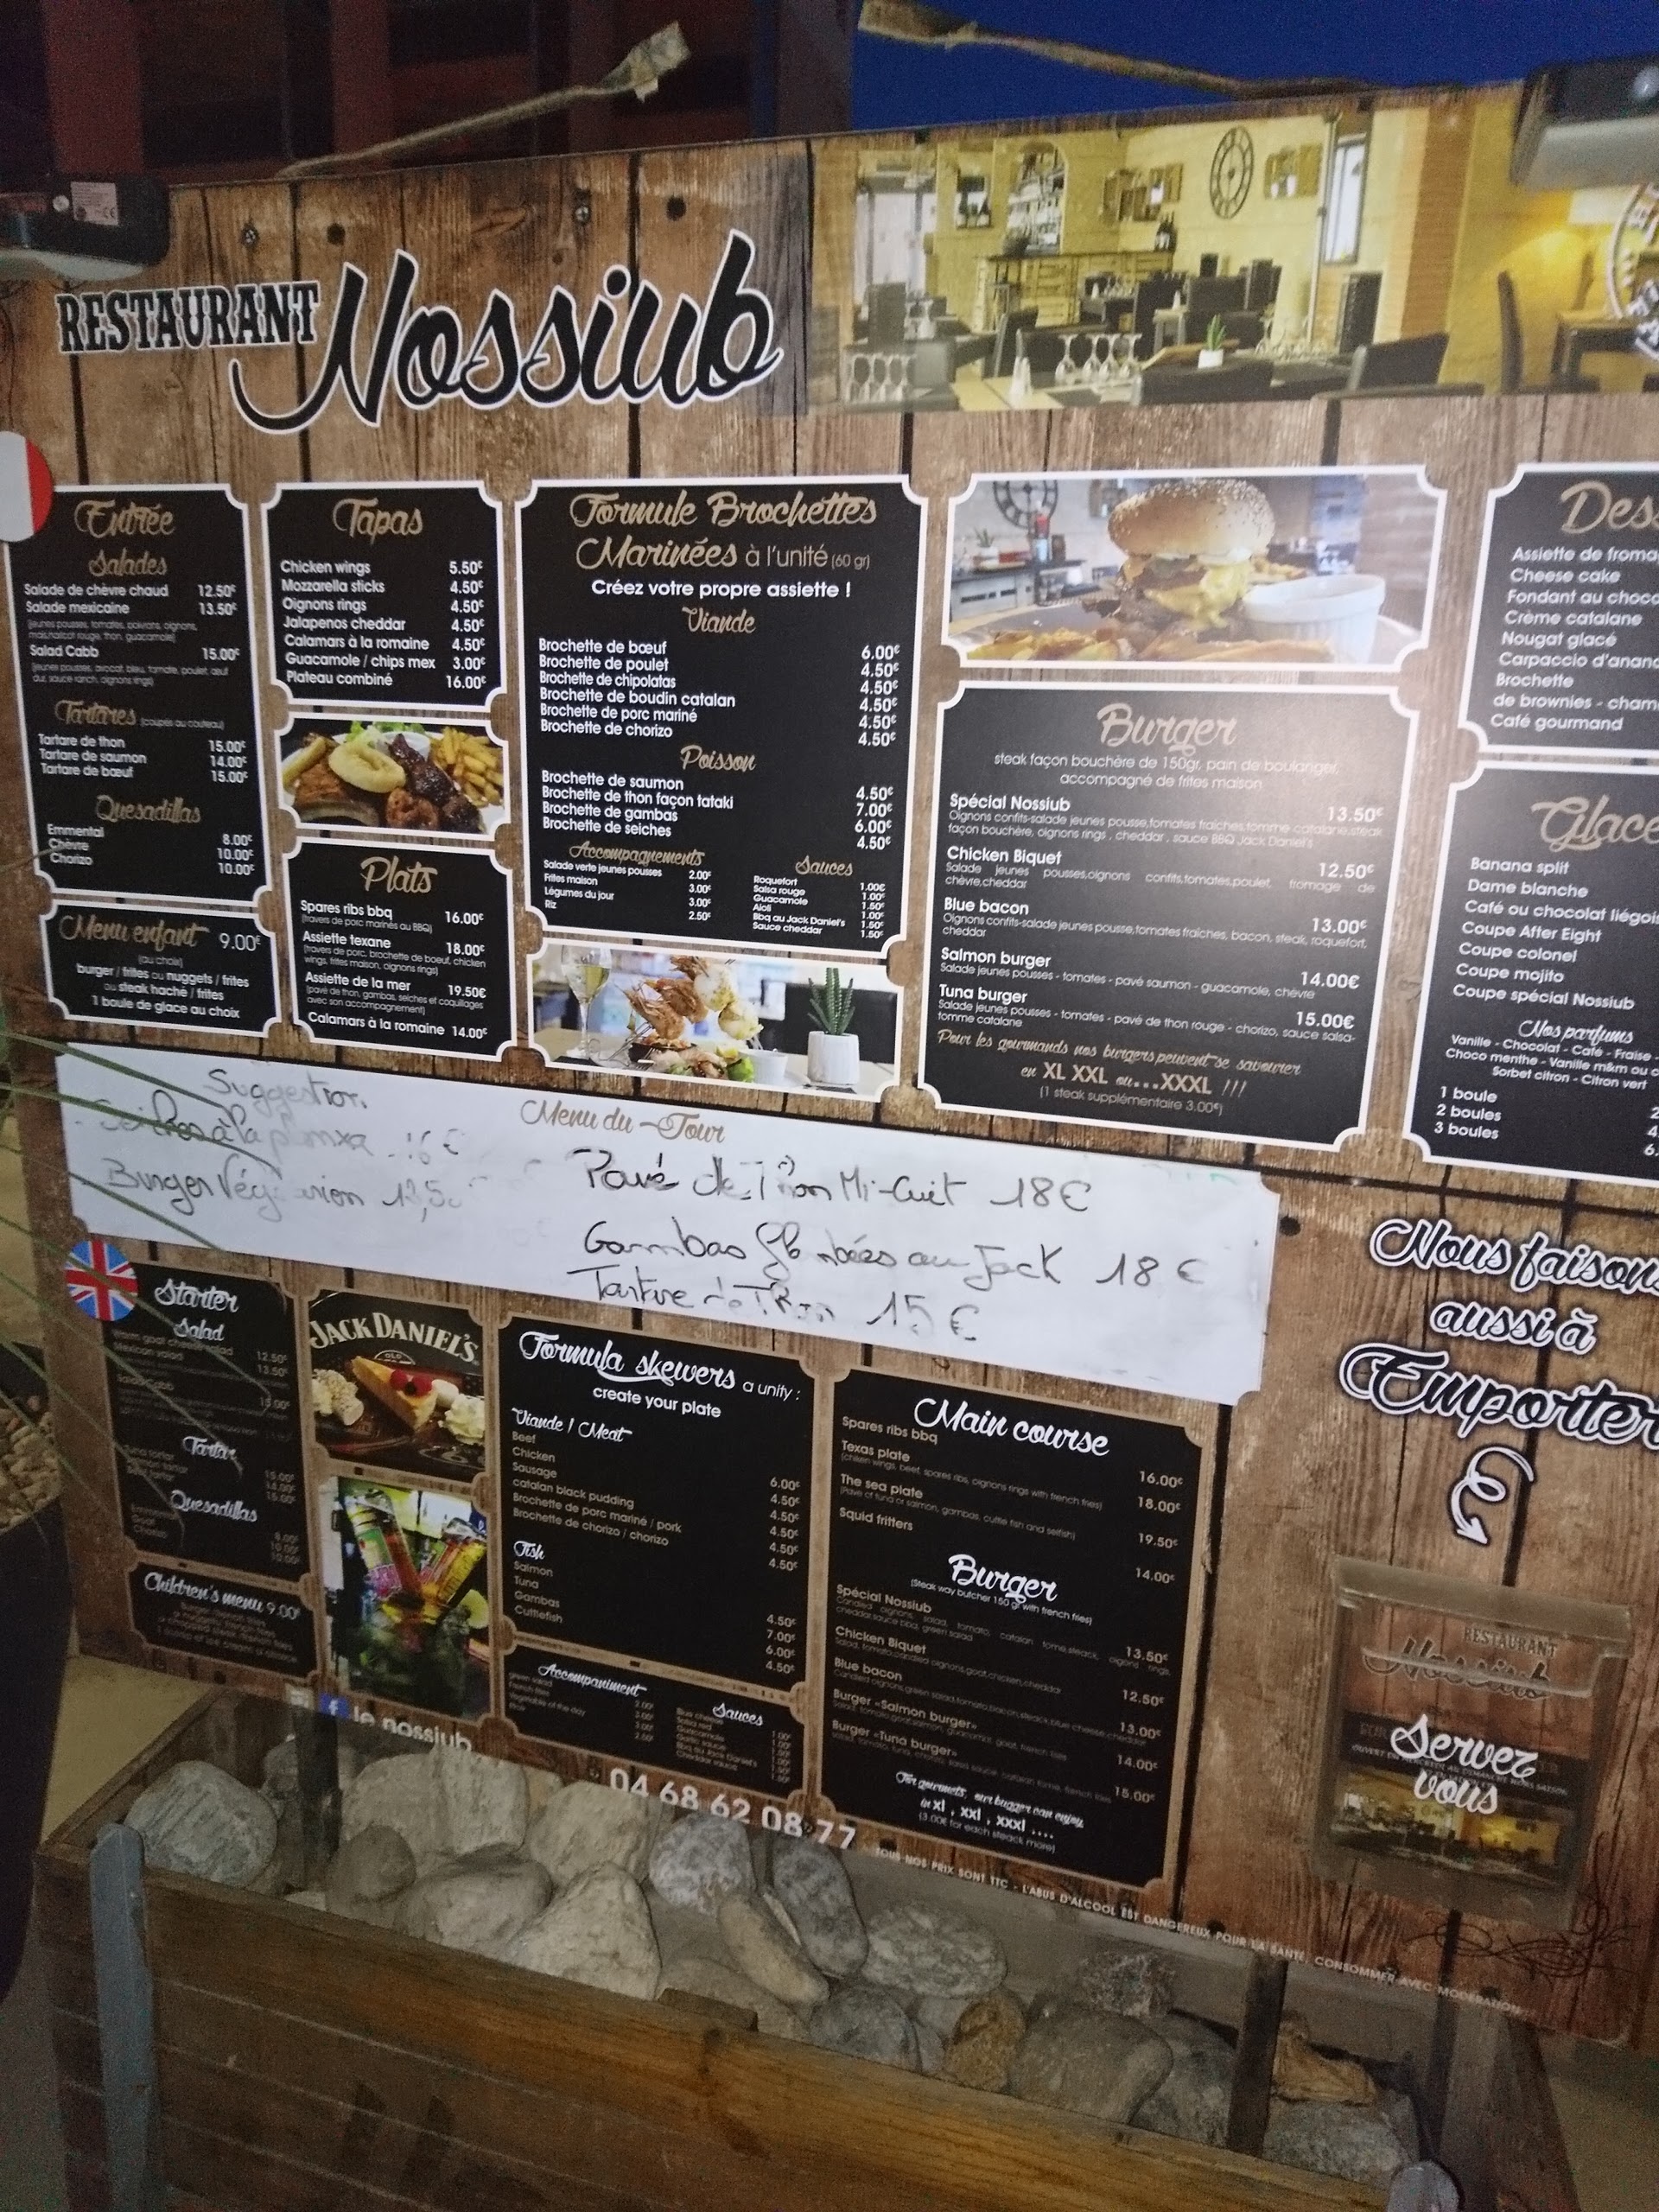 RESTAURANT Nossiub
Entrée
Salades
Salade de chèvre chaud 12.50€
Salade mexicaine 13.50€
(jeunes pousses, tomates, poivrons, oignons,
maïs, haricot rouge, thon, guacamole)
Salad Cabb 15.00€
(jeunes pousses, avocat, bleu, tomate, poulet, œuf
dur, sauce ranch, oignons rings)
Tartares (coupés au couteau)
Tartare de thon 15.00€
Tartare de saumon 14.00€
Tartare de bœuf 15.00€
Quesadillas
Emmental 8.00€
Chèvre 10.00€
Chorizo 10.00€
Menu enfant 9.00€
(au choix)
burger / frites ou nuggets / frites
ou steak haché / frites
1 boule de glace au choix
Tapas
Chicken wings 5.50€
Mozzarella sticks 4.50€
Oignons rings 4.50€
Jalapenos cheddar 4.50€
Calamars à la romaine 4.50€
Guacamole / chips mex 3.00€
Plateau combiné 16.00€
Plats
Spares ribs bbq 16.00€
(travers de porc marinés au BBQ)
Assiette texane 18.00€
(travers de porc, brochette de boeuf, chicken
wings, frites maison, oignons rings)
Assiette de la mer 19.50€
(pavé de thon, gambas, seiches et coquillages
avec son accompagnement)
Calamars à la romaine 14.00€
Formule Brochettes
Marinées à l'unité (60 gr)
Créez votre propre assiette !
Viande
Brochette de bœuf 6.00€
Brochette de poulet 4.50€
Brochette de chipolatas 4.50€
Brochette de boudin catalan 4.50€
Brochette de porc mariné 4.50€
Brochette de chorizo 4.50€
Poisson
Brochette de saumon 4.50€
Brochette de thon façon tataki 7.00€
Brochette de gambas 6.00€
Brochette de seiches 4.50€
Accompagnements
Salade verte jeunes pousses 2.00€
Frites maison 3.00€
Légumes du jour 3.00€
Riz 2.50€
Sauces
Roquefort 1.00€
Salsa rouge 1.00€
Guacamole 1.50€
Aïoli 1.00€
Bbq au Jack Daniel's 1.50€
Sauce cheddar 1.50€
Burger
steak façon bouchère de 150gr, pain de boulanger,
accompagné de frites maison
Spécial Nossiub 13.50€
Oignons confits-salade jeunes pousse,tomates fraiches,tomme catalane,steak
façon bouchère, oignons rings , cheddar , sauce BBQ Jack Daniel's
Chicken Biquet 12.50€
Salade jeunes pousses,oignons confits,tomates,poulet, fromage de
chèvre,cheddar
Blue bacon 13.00€
Oignons confits-salade jeunes pousse,tomates fraîches, bacon, steak, roquefort,
cheddar
Salmon burger 14.00€
Salade jeunes pousses - tomates - pavé saumon - guacamole, chèvre
Tuna burger 15.00€
Salade jeunes pousses - tomates - pavé de thon rouge - chorizo, sauce salsa-
tomme catalane
Pour les gourmands nos burgers peuvent se savourer
en XL XXL ou...XXXL !!!
(1 steak supplémentaire 3.00€)
Des
Assiette de froma
Cheese cake
Fondant au choco
Crème catalane
Nougat glacé
Carpaccio d'anana
Brochette
de brownies - cham
Café gourmand
Glace
Banana split
Dame blanche
Café ou chocolat liégois
Coupe After Eight
Coupe colonel
Coupe mojito
Coupe spécial Nossiub
Nos parfums
Vanille - Chocolat - Café - Fraise -
Choco menthe - Vanille m&m ou c
Sorbet citron - Citron vert
1 boule 2
2 boules 4
3 boules 6.
Suggestion
à la 16€
Burger
Menu du Jour
Pavé de Thon Mi-Cuit 18€
Gambas flambées au Jack 18€
Tartare de Thon 15€
Starter
Salad
Warm goat cheese salad 12.50€
Mexican salad 13.50€
Salad Cabb 15.00€
Tartar
Tuna tartar 15.00€
Salmon tartar 14.00€
Beef tartar 15.00€
Quesadillas
Emmental 8.00€
Goat 10.00€
Chorizo 10.00€
Children's menu 9.00€
JACK DANIEL'S
OLD
Formula skewers a unity :
create your plate
Viande / Meat
Beef 6.00€
Chicken 4.50€
Sausage 4.50€
catalan black pudding 4.50€
Brochette de porc mariné / pork 4.50€
Brochette de chorizo / chorizo 4.50€
Fish
Salmon 4.50€
Tuna 7.00€
Gambas 6.00€
Cuttlefish 4.50€
Accompaniment
green salad 2.00€
French fries 3.00€
Vegetable of the day 3.00€
Rice 2.50€
Sauces
Blue cheese 1.00€
Salsa red 1.00€
Guacamole 1.50€
Garlic sauce 1.00€
Bbq au Jack Daniel's 1.50€
Cheddar sauce 1.50€
Main course
Spares ribs bbq 16.00€
Texas plate 18.00€
(chiken wings, beef, spares ribs, oignons rings with french fries)
The sea plate 19.50€
(Pave of tuna or salmon, gambas, cuttle fish and selfish)
Squid fritters 14.00€
Burger
(Steak way butcher 150 gr with french fries)
Spécial Nossiub 13.50€
Chicken Biquet 12.50€
Salad, tomato,candied oignons,goat,chicken,cheddar
Blue bacon 13.00€
Candied oignons,green salad,tomato,bacon,steack,blue cheese,cheddar
Burger «Salmon burger» 14.00€
Burger «Tuna burger» 15.00€
For gourmets, our bugger can enjoy
in xl , xxl , xxxl ....
(3.00€ for each steack more)
le nossiub
04 68 62 08 77
TOUS NOS PRIX SONT TTC - L'ABUS D'ALCOOL EST DANGEREUX POUR LA SANTÉ, CONSOMMER AVEC MODÉRATION
Nous faisons
aussi à
Emporter
RESTAURANT
Nossiub
Servez
vous